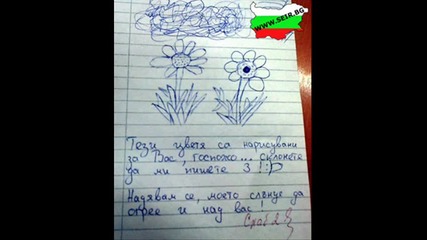 WWW.SEIR.BG
Тези цветя са нарисувани
за Вас, госпожо... склонете
да ми пишете 3 !:D
Надявам се, моето слънце да
огрее и над вас!
Слаб 2